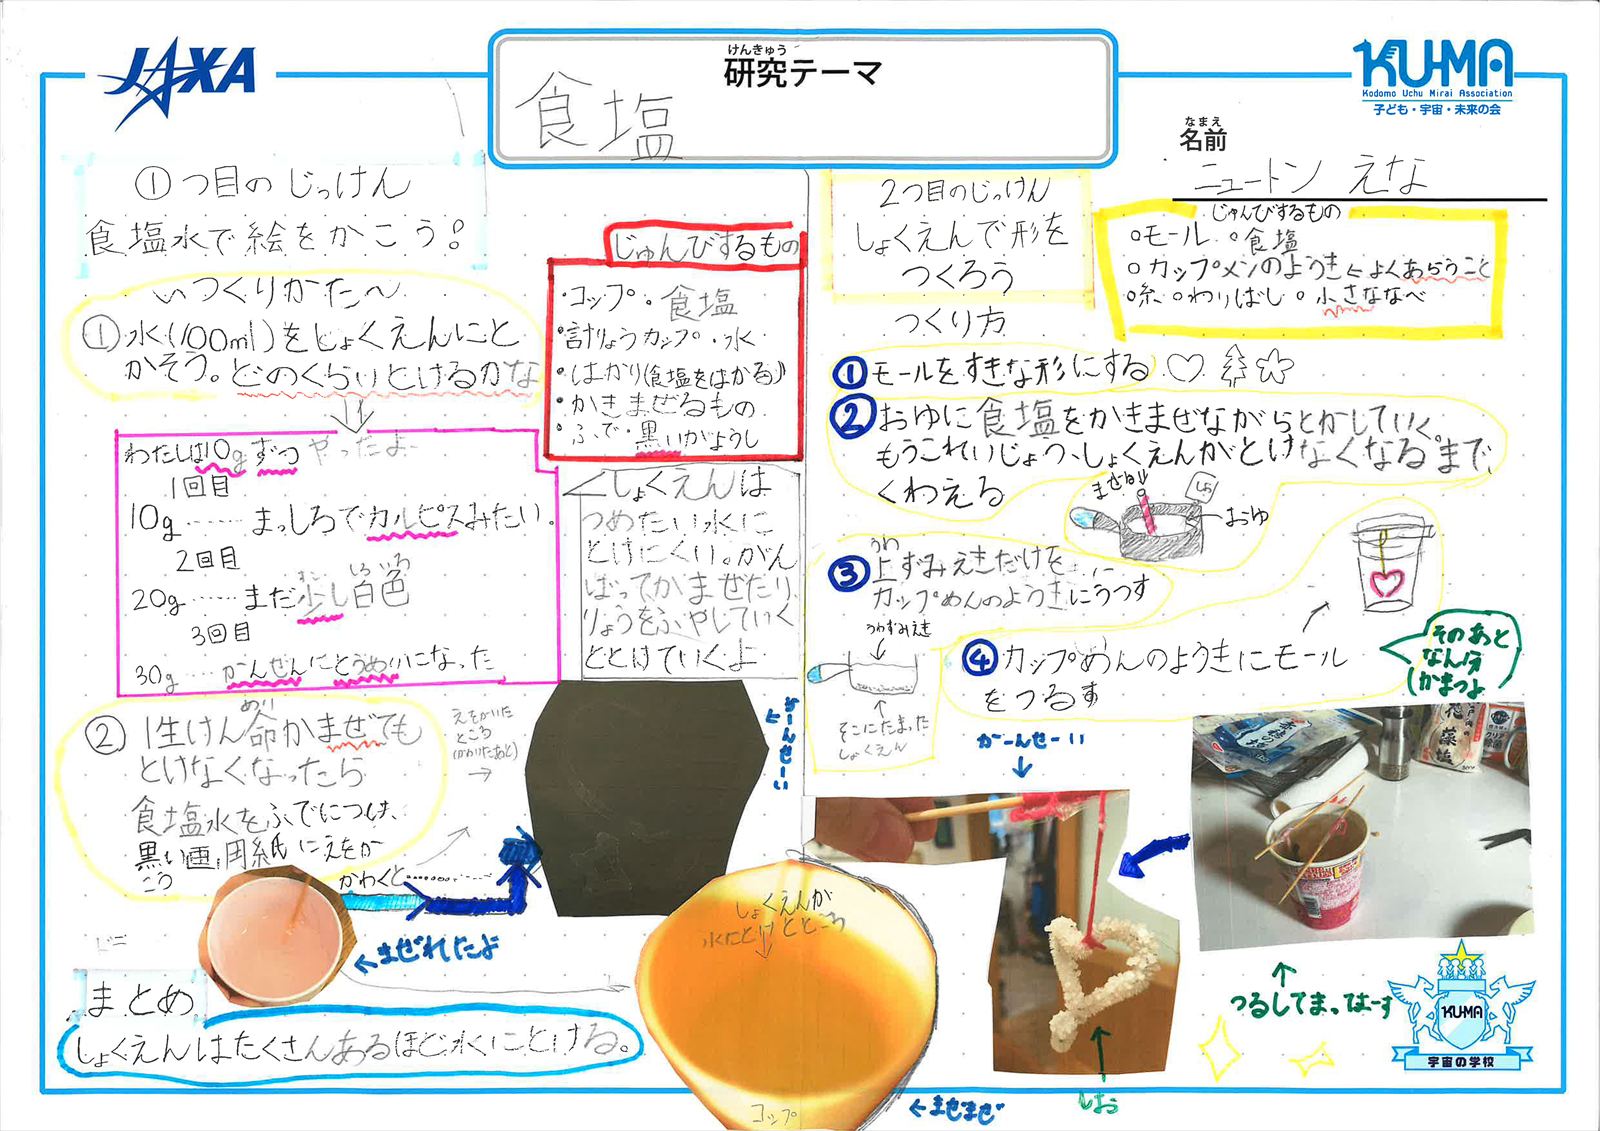 JAXA
けんきゅう
研究テーマ
食塩
KU-MA
Kodomo Uchu Mirai Association
子ども・宇宙・未来の会
なまえ
名前
ニュートン えな
①つ目のじっけん
食塩水で絵をかこう!
いつくりかた〜
①水(100ml)をしょくえんにと
かそう。どのくらいとけるかな
わたしは10gずつ やったよ
1回目
10g…… まっしろでカルピスみたい。
2回目
すこ しろいろ
20g…… まだ少し白色
3回目
30g… かんぜんにとうめいになった
じゅんびするもの
・コップ・食塩
・計りょうカップ・水
・はかり(食塩をはかる)
・かきまぜるもの
・ふで・黒いがようし
しょくえんは
つめたい水に
とけにくい。がん
ばってかまぜたり、
りょうをふやしていく
ととけていくよ
めい
②1生けん命かまぜても
とけなくなったら
食塩水をふでにつけ、
黒い画用紙にえをか
こう
えをかいた
ところ
(かわいたあと)
かわくと…………
かーんせーい
←まざれたよ
まとめ
しょくえんはたくさんあるほど水にとける。
しょくえんが
水にとけとところ
コップ
←まぜまぜ
2つ目のじっけん
しょくえんで形を
つくろう
つくり方
じゅんびするもの
○モール ○食塩
○カップメンのようき←よくあらうこと
○糸 ○わりばし ○小さななべ
①モールをすきな形にする
②おゆに食塩をかきまぜながらとかしていく
もうこれいじょう、しょくえんがとけなくなるまで、
くわえる
まぜる
しお
おゆ
うわ
③上ずみえきだけを
カップめんのようきにうつす
うわずみえき
そこにたまった
しょくえん
④カップめんのようきにモール
をつるす
そのあと
なん分
かまつよ
かーんせーい
しお
つるしてまってまーす
KUMA
宇宙の学校